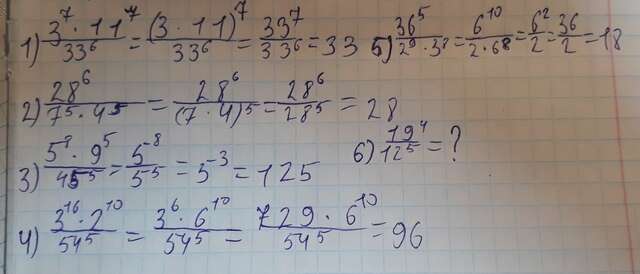 1) 3^7 · 11^7 / 33^6 = (3 · 11)^7 / 33^6 = 33^7 / 33^6 = 33
5) 36^5 / 2^9 · 3^8 = 6^10 / 2 · 6^8 = 6^2 / 2 = 36 / 2 = 18
2) 28^6 / 7^5 · 4^5 = 28^6 / (7 · 4)^5 = 28^6 / 28^5 = 28
3) 5^8 · 9^5 / 45^5 = 5^8 / 5^5 = 5^-3 = 125
6) 19^4 / 12^5 = ?
4) 3^16 · 2^10 / 54^5 = 3^6 · 6^10 / 54^5 = 729 · 6^10 / 54^5 = 96